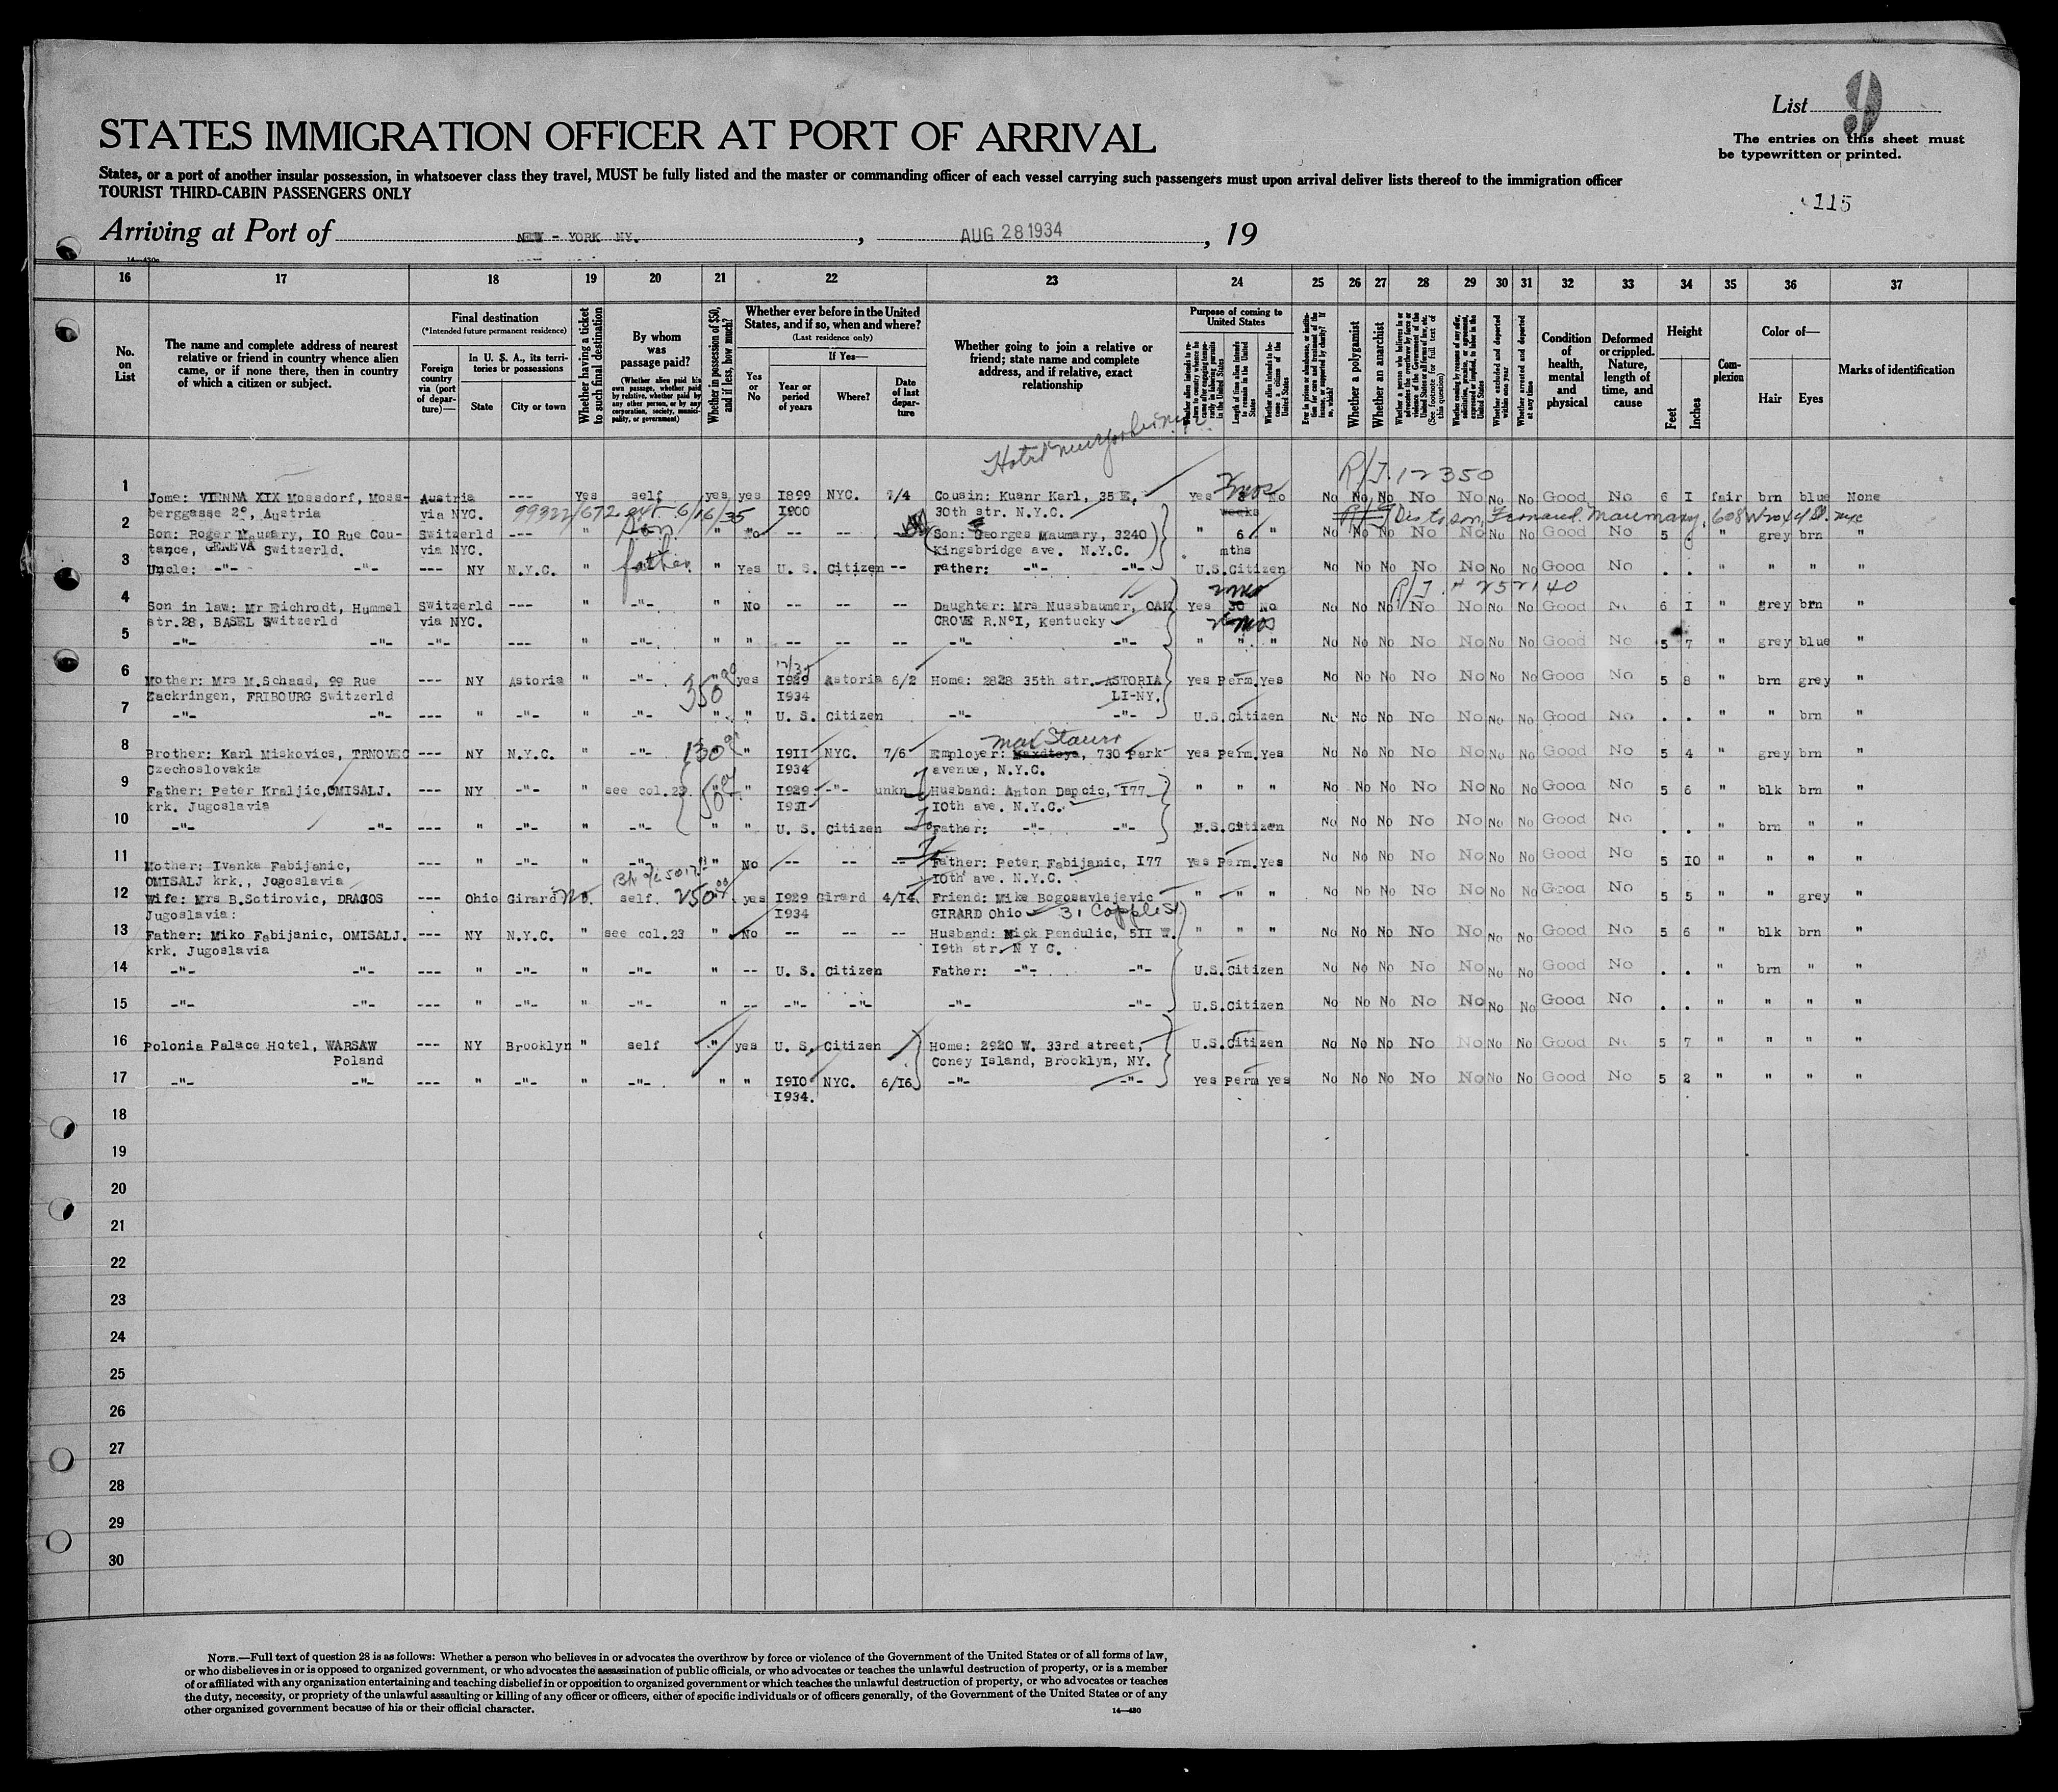 List 9
STATES IMMIGRATION OFFICER AT PORT OF ARRIVAL
The entries on this sheet must
be typewritten or printed.
States, or a port of another insular possession, in whatsoever class they travel, MUST be fully listed and the master or commanding officer of each vessel carrying such passengers must upon arrival deliver lists thereof to the immigration officer
TOURIST THIRD-CABIN PASSENGERS ONLY
115
Arriving at Port of NEW - YORK NY. , AUG 28 1934 , 19
16 17 18 19 20 21 22 23 24 25 26 27 28 29 30 31 32 33 34 35 36 37
No. on List
The name and complete address of nearest relative or friend in country whence alien came, or if none there, then in country of which a citizen or subject.
Final destination
(*Intended future permanent residence)
Foreign country via (port of departure)—
In U. S. A., its territories or possessions
State City or town
Whether having a ticket to such final destination
By whom was passage paid?
(Whether alien paid his own passage, whether paid by relative, whether paid by any other person, or by any corporation, society, municipality, or government)
Whether in possession of $50, and if less, how much?
Whether ever before in the United States, and if so, when and where?
(Last residence only)
Yes or No
If Yes—
Year or period of years Where? Date of last departure
Whether going to join a relative or friend; state name and complete address, and if relative, exact relationship
Purpose of coming to United States
Length of time alien intends to remain in the United States
Whether alien intends to become a citizen of the United States
Whether a polygamist
Whether an anarchist
Whether excluded and deported within one year
Whether arrested and deported at any time
Condition of health, mental and physical
Deformed or crippled. Nature, length of time, and cause
Height
Feet Inches
Complexion
Color of—
Hair Eyes
Marks of identification
R/J. 12350
1 Jome: VIENNA XIX Mossdorf, Moss- Austria --- Yes self yes yes 1899 NYC. 7/4 Cousin: Kuanr Karl, 35 E. Yes No No No No No No No No Good No 6 1 fair brn blue None
berggasse 2°, Austria via NYC. 99322/672 ext 6/16/35 1900 30th str. N.Y.C. weeks
2 Son: Roger Maumary, 10 Rue Cou- Switzerld --- " son " No -- -- -- Son: Georges Maumary, 3240 " 6 " No No No No No No No Good No 5 " grey brn "
tance, GENEVA Switzerld. via NYC. Kingsbridge ave. N.Y.C. mths
3 Uncle: -"- -"- --- NY N.Y.C. " father " Yes U. S. Citizen -- Father: -"- -"- U.S.Citizen No No No No No No No Good No . . " " " "
4 Son in law: Mr Eichrodt, Hummel Switzerld --- " -"- " No -- -- -- Daughter: Mrs Nussbaumer, OAK Yes 30 No No No No No No No No Good No 6 1 " grey brn "
str.28, BASEL Switzerld via NYC. CROVE R.N°1, Kentucky
5 -"- -"- -"- --- " -"- " " -- -- -- -"- -"- " " " No No No No No No No Good No 5 7 " grey blue "
6 Mother: Mrs M.Schaad, 99 Rue --- NY Astoria " -"- 350 yes 1929 Astoria 6/2 Home: 2828 35th str. ASTORIA Yes Perm. Yes No No No No No No No Good No 5 8 " brn grey "
Zackringen, FRIBOURG Switzerld 1934 LI-NY.
7 -"- -"- --- " -"- " -"- " " U. S. Citizen -"- -"- U.S.Citizen No No No No No No No Good No . . " " brn "
Max Stauss
8 Brother: Karl Miskovics, TRNOVEC --- NY N.Y.C. " -"- 130 " 1911 NYC. 7/6 Employer: Maxdtoya, 730 Park Yes Perm. Yes No No No No No No No Good No 5 4 " grey brn "
Czechoslovakia 1934 avenue, N.Y.C.
9 Father: Peter Kraljic, OMISALJ. --- NY -"- " see col.23 50 " 1929 -"- unkn Husband: Anton Dapcic, 177 " " " No No No No No No No Good No 5 6 " blk brn "
krk. Jugoslavia 1931 10th ave. N.Y.C.
10 -"- -"- --- " -"- " -"- " " U. S. Citizen Father: -"- -"- U.S.Citizen No No No No No No No Good No . . " brn " "
11 Mother: Ivanka Fabijanic, --- " -"- " -"- " No -- -- -- Father: Peter Fabijanic, 177 Yes Perm. Yes No No No No No No No Good No 5 10 " " " "
OMISALJ krk., Jogoslavia 10th ave. N.Y.C.
12 Wife: Mrs B.Sotirovic, DRAGOS --- Ohio Girard No. self. 250 yes 1929 Girard 4/14 Friend: Mike Bogosavlejevic " " " No No No No No No No Good No 5 5 " " grey "
Jugoslavia: 1934 GIRARD Ohio 31 Copple St.
13 Father: Miko Fabijanic, OMISALJ. --- NY N.Y.C. " see col.23 " No -- -- -- Husband: Mick Pendulic, 511 W. " " " No No No No No No No Good No 5 6 " blk brn "
krk. Jugoslavia 19th str. N Y C.
14 -"- -"- --- " -"- " -"- " -- U. S. Citizen Father: -"- -"- U.S.Citizen No No No No No No No Good No . . " brn " "
15 -"- -"- --- " -"- " -"- " -- -"- -"- -"- -"- U.S.Citizen No No No No No No No Good No . . " " " "
16 Polonia Palace Hotel, WARSAW --- NY Brooklyn " self " yes U. S. Citizen Home: 2920 W. 33rd street, U.S.Citizen No No No No No No No Good No 5 7 " " " "
Poland Coney Island, Brooklyn, NY.
17 -"- -"- --- " -"- " -"- " " 1910 NYC. 6/16 -"- -"- Yes Perm Yes No No No No No No No Good No 5 2 " " " "
1934.
18
19
20
21
22
23
24
25
26
27
28
29
30
NOTE.—Full text of question 28 is as follows: Whether a person who believes in or advocates the overthrow by force or violence of the Government of the United States or of all forms of law,
or who disbelieves in or is opposed to organized government, or who advocates the assassination of public officials, or who advocates or teaches the unlawful destruction of property, or is a member
of or affiliated with any organization entertaining and teaching disbelief in or opposition to organized government or which teaches the unlawful destruction of property, or who advocates or teaches
the duty, necessity, or propriety of the unlawful assaulting or killing of any officer or officers, either of specific individuals or of officers generally, of the Government of the United States or of any
other organized government because of his or their official character.
14—430